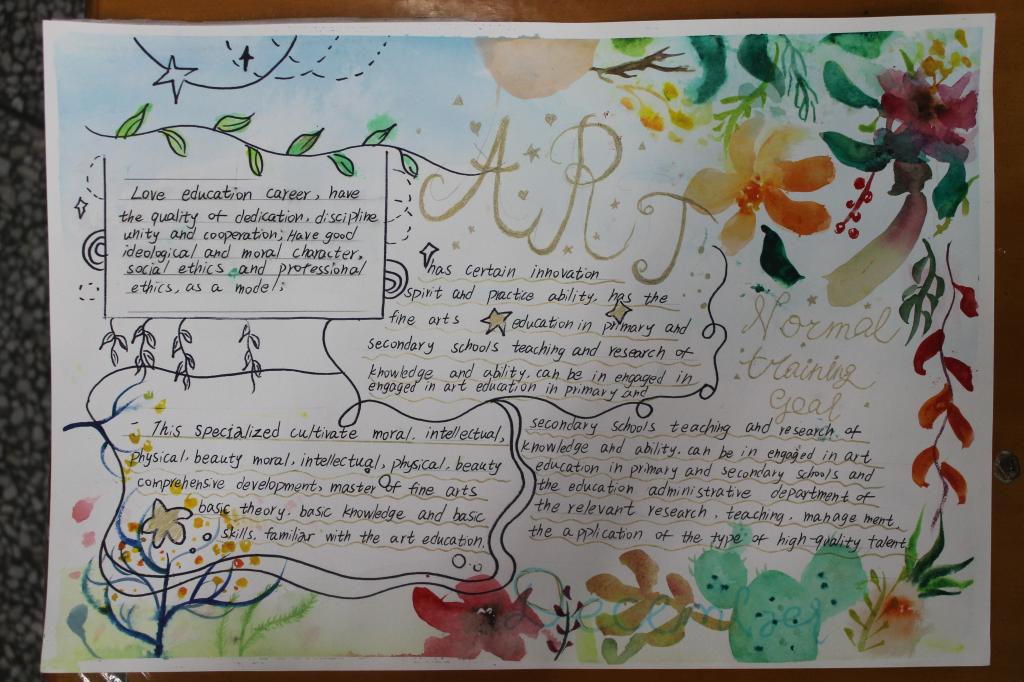 ART
Love education career, have
the quality of dedication, discipline
unity and cooperation; Have good
ideological and moral character.
social ethics and professional
ethics, as a model;
has certain innovation
spirit and practice ability. has the
fine arts education in primary and
secondary schools teaching and research of
knowledge and ability. can be in engaged in
engaged in art education in primary and
Normal
training
goal
This specialized cultivate moral. intellectual,
physical. beauty moral. intellectual, physical. beauty
comprehensive development, master of fine arts
basic theory. basic knowledge and basic
skills. familiar with the art education.
secondary schools teaching and research of
knowledge and ability. can be in engaged in art
education in primary and secondary schools and
the education administrative department of
the relevant research, teaching, management
the application of the type of high-quality talent
December